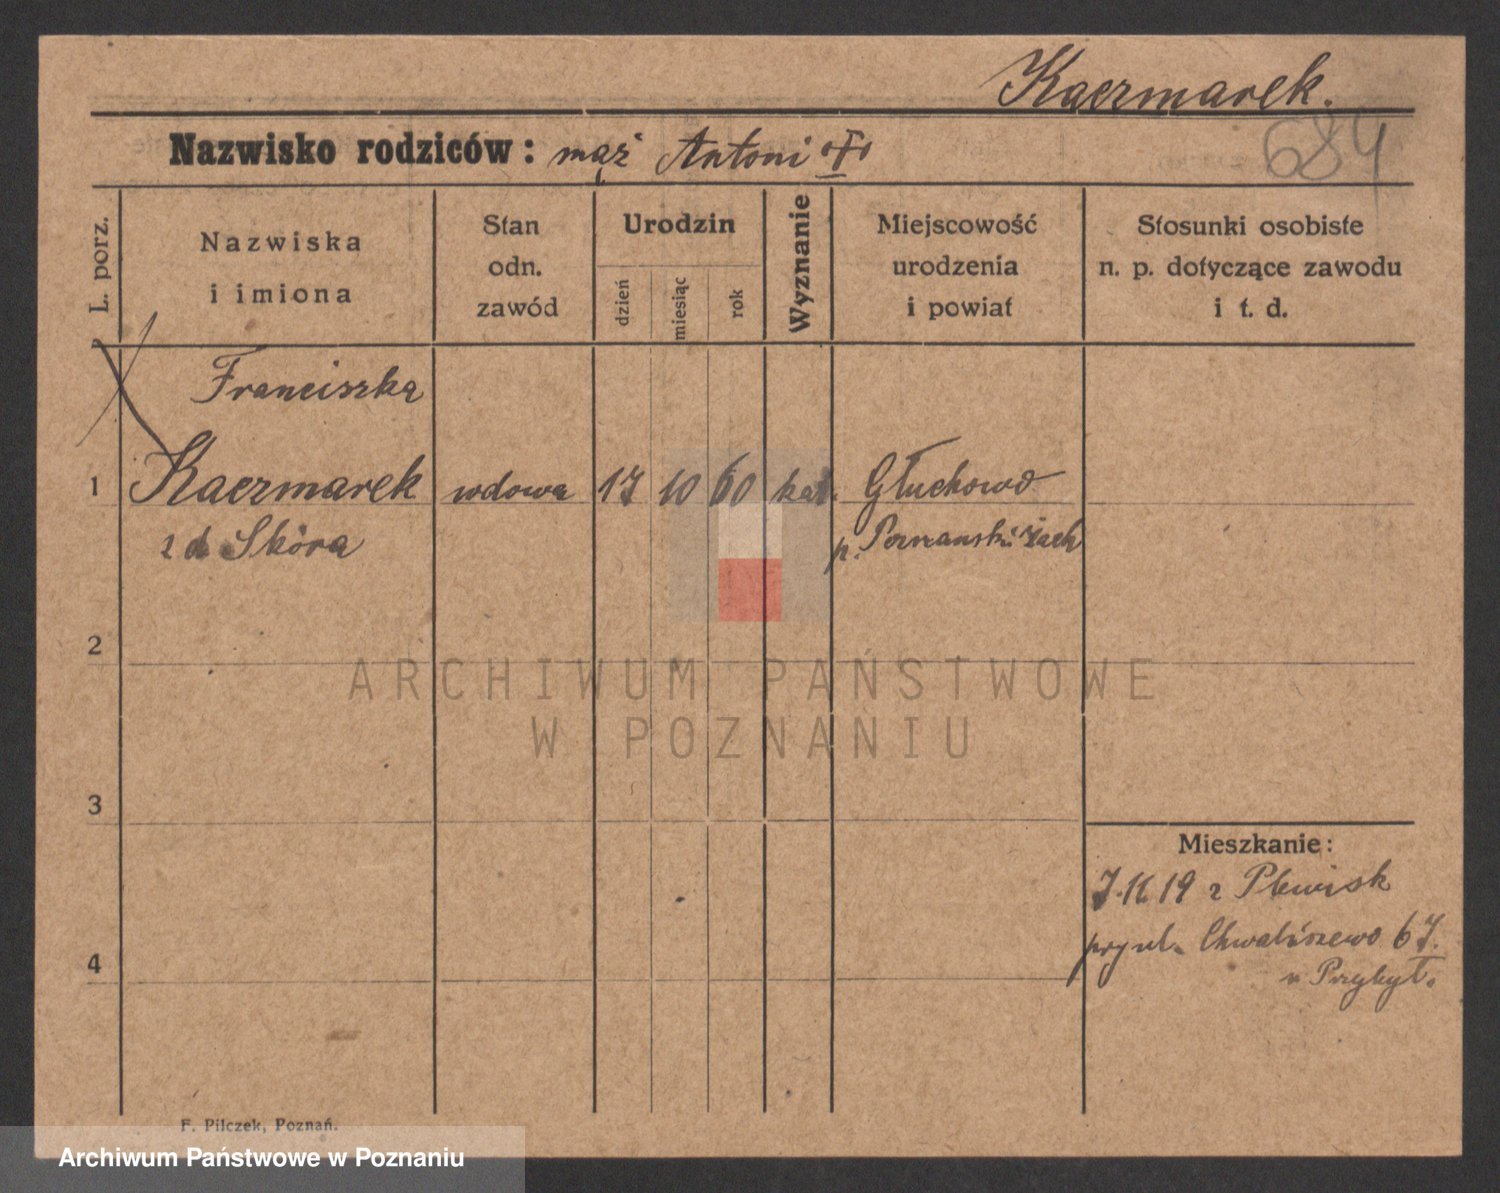 Kaczmarek.
684
Nazwisko rodziców: mąż Antoni
L. porz.
Nazwiska
i imiona
Stan
odn.
zawód
Urodzin
dzień
miesiąc
rok
Wyznanie
Miejscowość
urodzenia
i powiat
Stosunki osobiste
n. p. dotyczące zawodu
i t. d.
Franciszka
1 Kaczmarek wdowa 17 10 60 kat. Głuchowo
z d Skóra p. Poznański Zach
2
ARCHIWUM PAŃSTWOWE
W POZNANIU
3
Mieszkanie:
7.11.19 z Plewisk
przy ul. Chwaliszewo 67.
4
u Przybył.
F. Pilczek, Poznań.
Archiwum Państwowe w Poznaniu